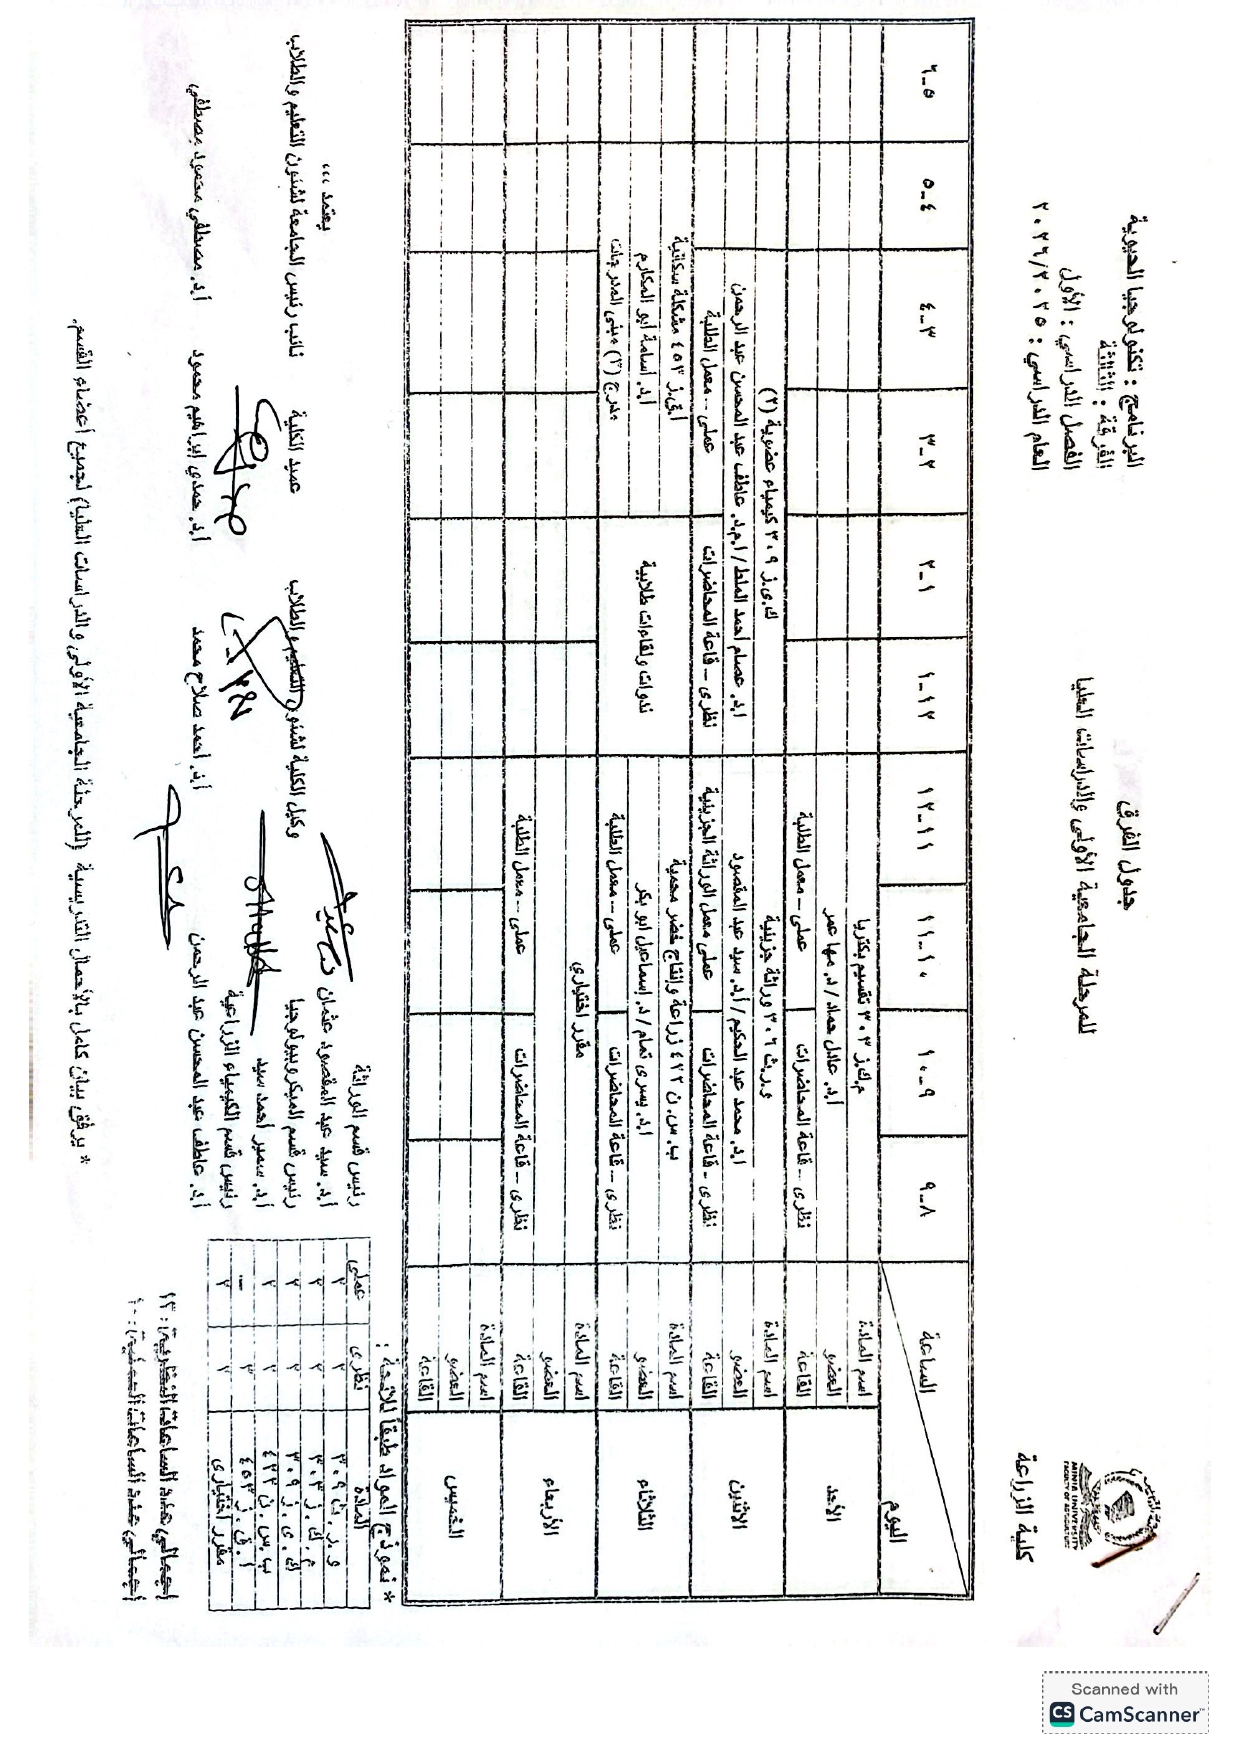 كلية الزراعة
MINIA UNIVERSITY
FACULTY OF AGRICULTURE
جدول الفرق
للمرحلة الجامعية الأولى والدراسات العليا
البرنامج : تكنولوجيا الحيوية
الفرقة : الثالثة
الفصل الدراسي : الأول
العام الدراسي : ٢٠٢٦/٢٠٢٥
اليوم الساعة ٨-٩ ٩-١٠ ١٠-١١ ١١-١٢ ١٢-١ ١-٢ ٢-٣ ٣-٤ ٤-٥ ٥-٦
الأحد
اسم المادة م.ك.ز ٣٠٣ تقسيم بكتريا
العضو أ.د. عادل حماد / د. مها عمر
القاعة نظرى – قاعة المحاضرات عملى – معمل الطلبة
الاثنين
اسم المادة و.ر.ث ٣٠٦ وراثة جزيئية ك.ى.ز ٣٠٩ كيمياء عضوية (٢)
العضو ا.د. محمد عبد الحكيم / أ.د. سيد عبد المقصود ا.د. عصام احمد الملط / ا.م.د. عاطف عبد المحسن عبد الرحمن
القاعة نظرى - قاعة المحاضرات عملى معمل الوراثة الجزيئية نظرى – قاعة المحاضرات عملى – معمل الطلبة
الثلاثاء
اسم المادة ب.س.ن ٤٢٢ زراعة وإنتاج خضر محمية ندوات ولقاءات طلابية أ.ق.ز ٤٥٣ مشكلة سكانية
العضو ا.د. يسرى تمام / د. إسماعيل ابو بكر أ.د. اسامة ابو المكارم
القاعة نظرى – قاعة المحاضرات عملى – معمل الطلبة مدرج (٣) مبنى المدرجات
الأربعاء
اسم المادة مقرر اختياري
العضو
القاعة نظرى – قاعة المحاضرات عملى – معمل الطلبة
الخميس
اسم المادة
العضو
القاعة
* نموذج المواد طبقا للائحة :
المادة نظرى عملى
و.ر.ث ٣٠٩ ٢ ٢
م.ك.ز ٣٠٣ ٢ ٢
ك.ى.ز ٣٠٩ ٢ ٢
ب.س.ن ٤٢٢ ٢ ٢
أ.ق.ز ٤٥٣ ٢ –
مقرر اختيارى ٢ ٢
اجمالي عدد الساعات النظرية : ١٢
اجمالي عدد الساعات العملية : ١٠
رئيس قسم الوراثة
أ.د. سيد عبد المقصود عثمان
رئيس قسم الميكروبيولوجيا
أ.د. سمير أحمد سيد
رئيس قسم الكيمياء الزراعية
أ.د. عاطف عبد المحسن عبد الرحمن
وكيل الكلية لشئون التعليم والطلاب
أ.د. احمد صلاح محمد
عميد الكلية
أ.د. حمدي ابراهيم محمود
يعتمد ،،،
نائب رئيس الجامعة لشئون التعليم والطلاب
أ.د. مصطفي محمود مصطفي
* يرفق بيان كامل بالأحمال التدريسية (للمرحلة الجامعية الأولى والدراسات العليا) لجميع أعضاء القسم.
Scanned with
CS CamScanner